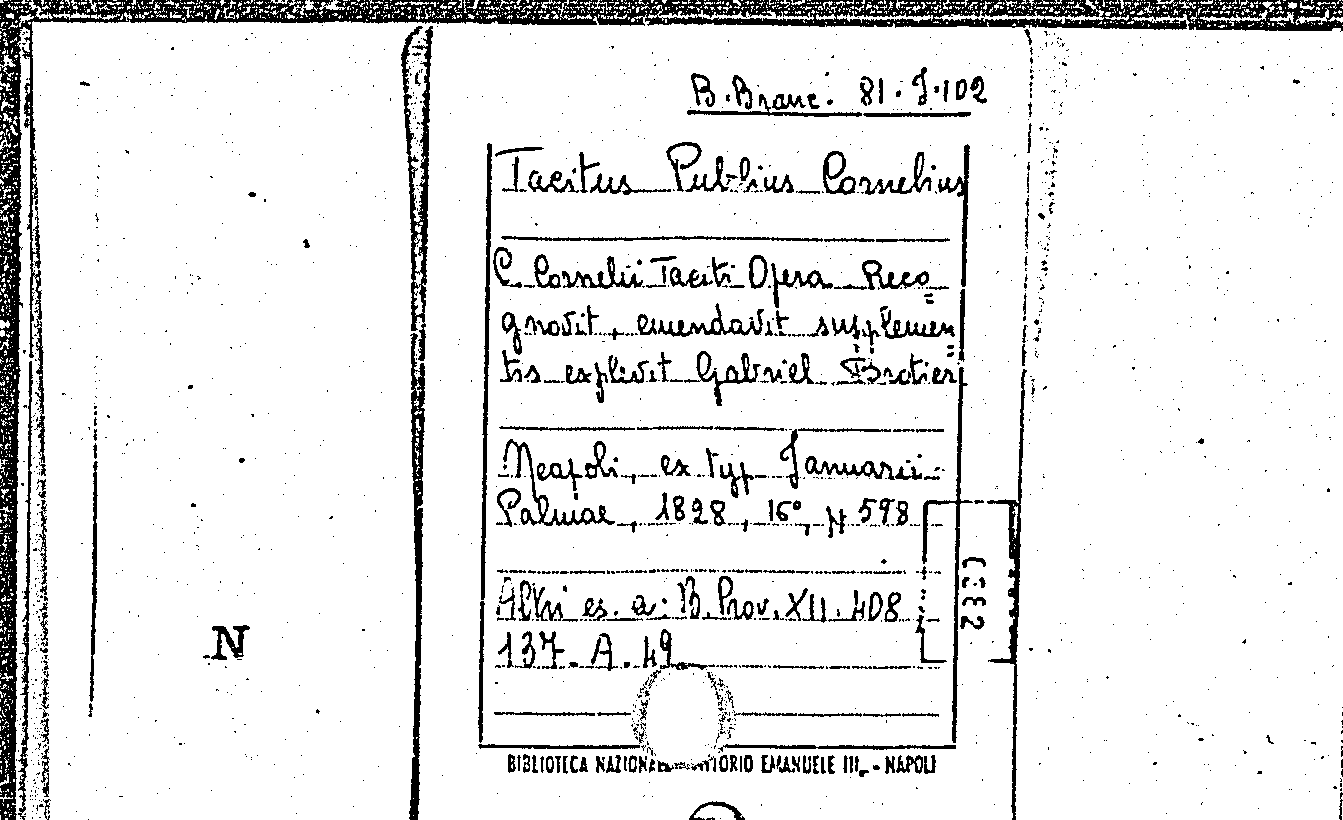 B. Branc. 81. J. 102
Tacitus Publius Cornelius
C. Cornelii Taciti Opera Reco=
gnovit, emendavit supplemen=
tis explevit Gabriel Brotier,
Neapoli, ex typ. Januarii
Palmae, 1828, 16°, p. 598
Altri es. a: B. Prov. XII. 408
137. A. 49
N
BIBLIOTECA NAZIONALE VITTORIO EMANUELE III - NAPOLI